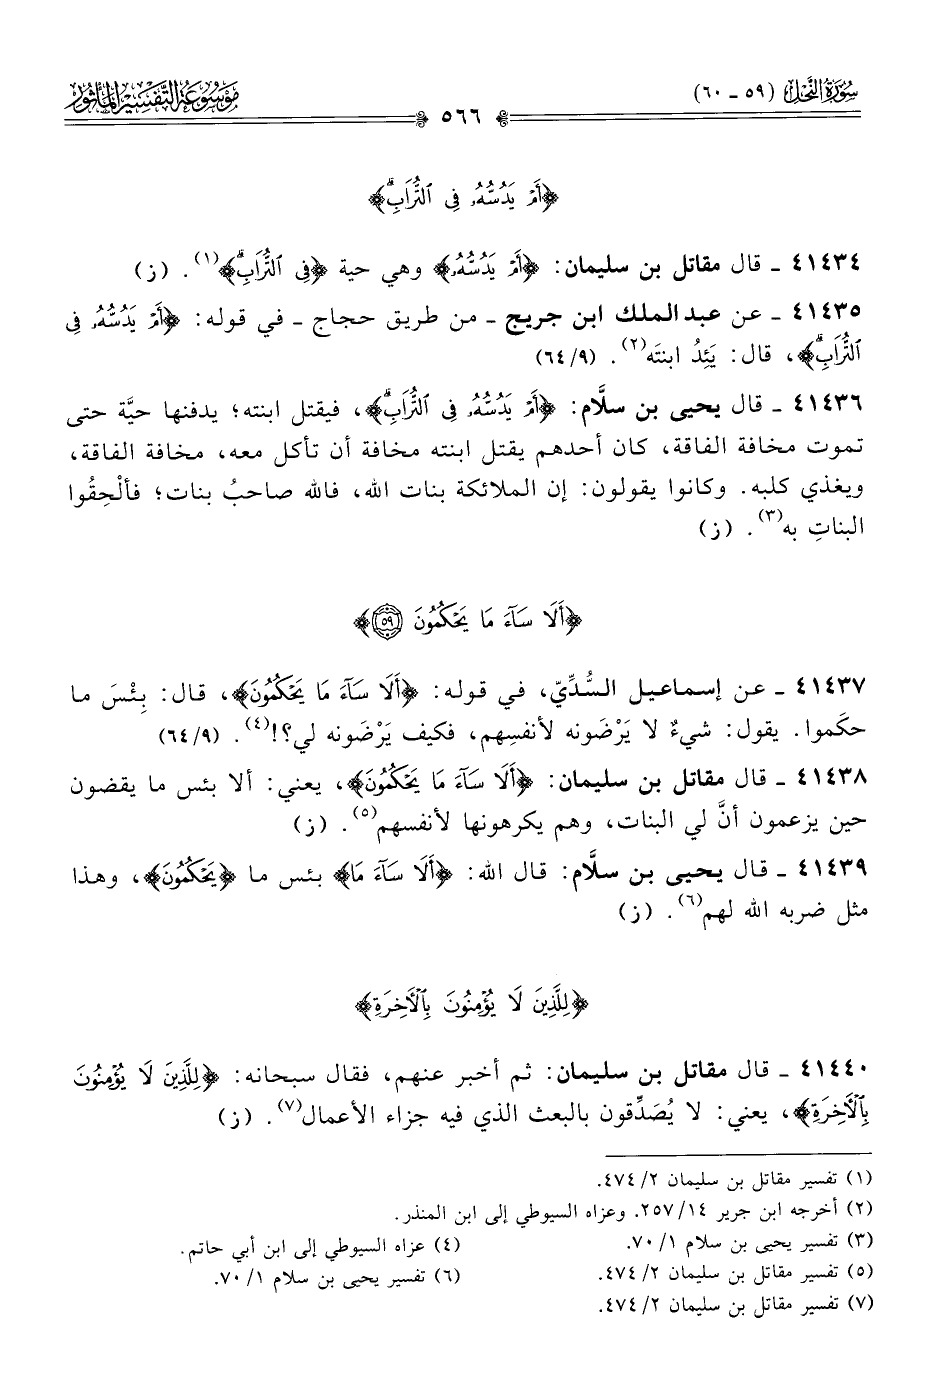 سُورَةُ النَّحْلِ (٥٩ ـ ٦٠)
٥٦٦
مَوْسُوعَةُ التَّفْسِيرِ الْمَأْثُورِ
﴿أَمْ يَدُسُّهُۥ فِى ٱلتُّرَابِۗ﴾
٤١٤٣٤ ـ قال مقاتل بن سليمان: ﴿أَمْ يَدُسُّهُۥ﴾ وهي حية ﴿فِى ٱلتُّرَابِۗ﴾(١). (ز)
٤١٤٣٥ ـ عن عبد الملك ابن جريج ـ من طريق حجاج ـ في قوله: ﴿أَمْ يَدُسُّهُۥ فِى
ٱلتُّرَابِۗ﴾، قال: يَئِدُ ابنتَه(٢). (٦٤/٩)
٤١٤٣٦ ـ قال يحيى بن سلَّام: ﴿أَمْ يَدُسُّهُۥ فِى ٱلتُّرَابِۗ﴾، فيقتل ابنته؛ يدفنها حيَّة حتى
تموت مخافة الفاقة، كان أحدهم يقتل ابنته مخافة أن تأكل معه، مخافة الفاقة،
ويغذي كلبه. وكانوا يقولون: إن الملائكة بنات الله، فالله صاحبُ بنات؛ فألْحِقُوا
البناتِ به(٣). (ز)
﴿أَلَا سَآءَ مَا يَحْكُمُونَ ٥٩﴾
٤١٤٣٧ ـ عن إسماعيل السُّدِّيّ، في قوله: ﴿أَلَا سَآءَ مَا يَحْكُمُونَ﴾، قال: بِئْسَ ما
حكَموا. يقول: شيءٌ لا يَرْضَونه لأنفسِهم، فكيف يَرْضَونه لي؟!(٤). (٦٤/٩)
٤١٤٣٨ ـ قال مقاتل بن سليمان: ﴿أَلَا سَآءَ مَا يَحْكُمُونَ﴾، يعني: ألا بئس ما يقضون
حين يزعمون أنَّ لي البنات، وهم يكرهونها لأنفسهم(٥). (ز)
٤١٤٣٩ ـ قال يحيى بن سلَّام: قال الله: ﴿أَلَا سَآءَ مَا﴾ بئس ما ﴿يَحْكُمُونَ﴾، وهذا
مثل ضربه الله لهم(٦). (ز)
﴿لِلَّذِينَ لَا يُؤْمِنُونَ بِٱلْأَخِرَةِ﴾
٤١٤٤٠ ـ قال مقاتل بن سليمان: ثم أخبر عنهم، فقال سبحانه: ﴿لِلَّذِينَ لَا يُؤْمِنُونَ
بِٱلْأَخِرَةِ﴾، يعني: لا يُصَدِّقون بالبعث الذي فيه جزاء الأعمال(٧). (ز)
(١) تفسير مقاتل بن سليمان ٤٧٤/٢.
(٢) أخرجه ابن جرير ٢٥٧/١٤. وعزاه السيوطي إلى ابن المنذر.
(٣) تفسير يحيى بن سلام ٧٠/١.
(٤) عزاه السيوطي إلى ابن أبي حاتم.
(٥) تفسير مقاتل بن سليمان ٤٧٤/٢.
(٦) تفسير يحيى بن سلام ٧٠/١.
(٧) تفسير مقاتل بن سليمان ٤٧٤/٢.